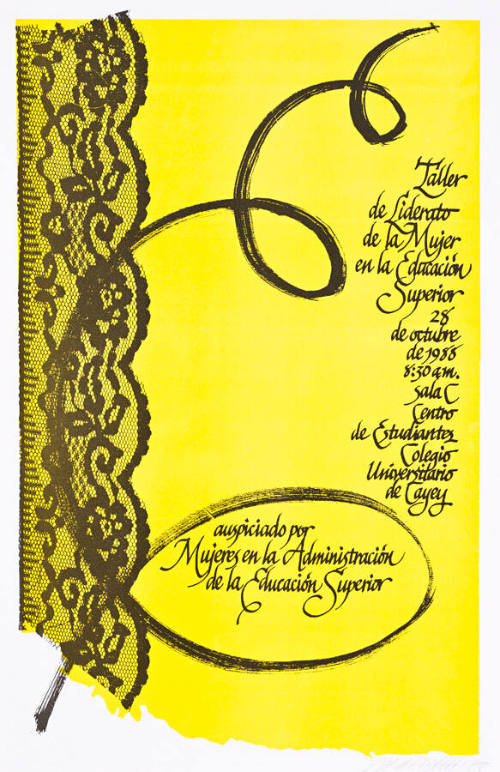 Taller
de Liderato
de la Mujer
en la Educación
Superior
28
de octubre
de 1988
8:30 a.m.
Sala C
Centro
de Estudiantes
Colegio
Universitario
de Cayey
auspiciado por
Mujeres en la Administración
de la Educación Superior